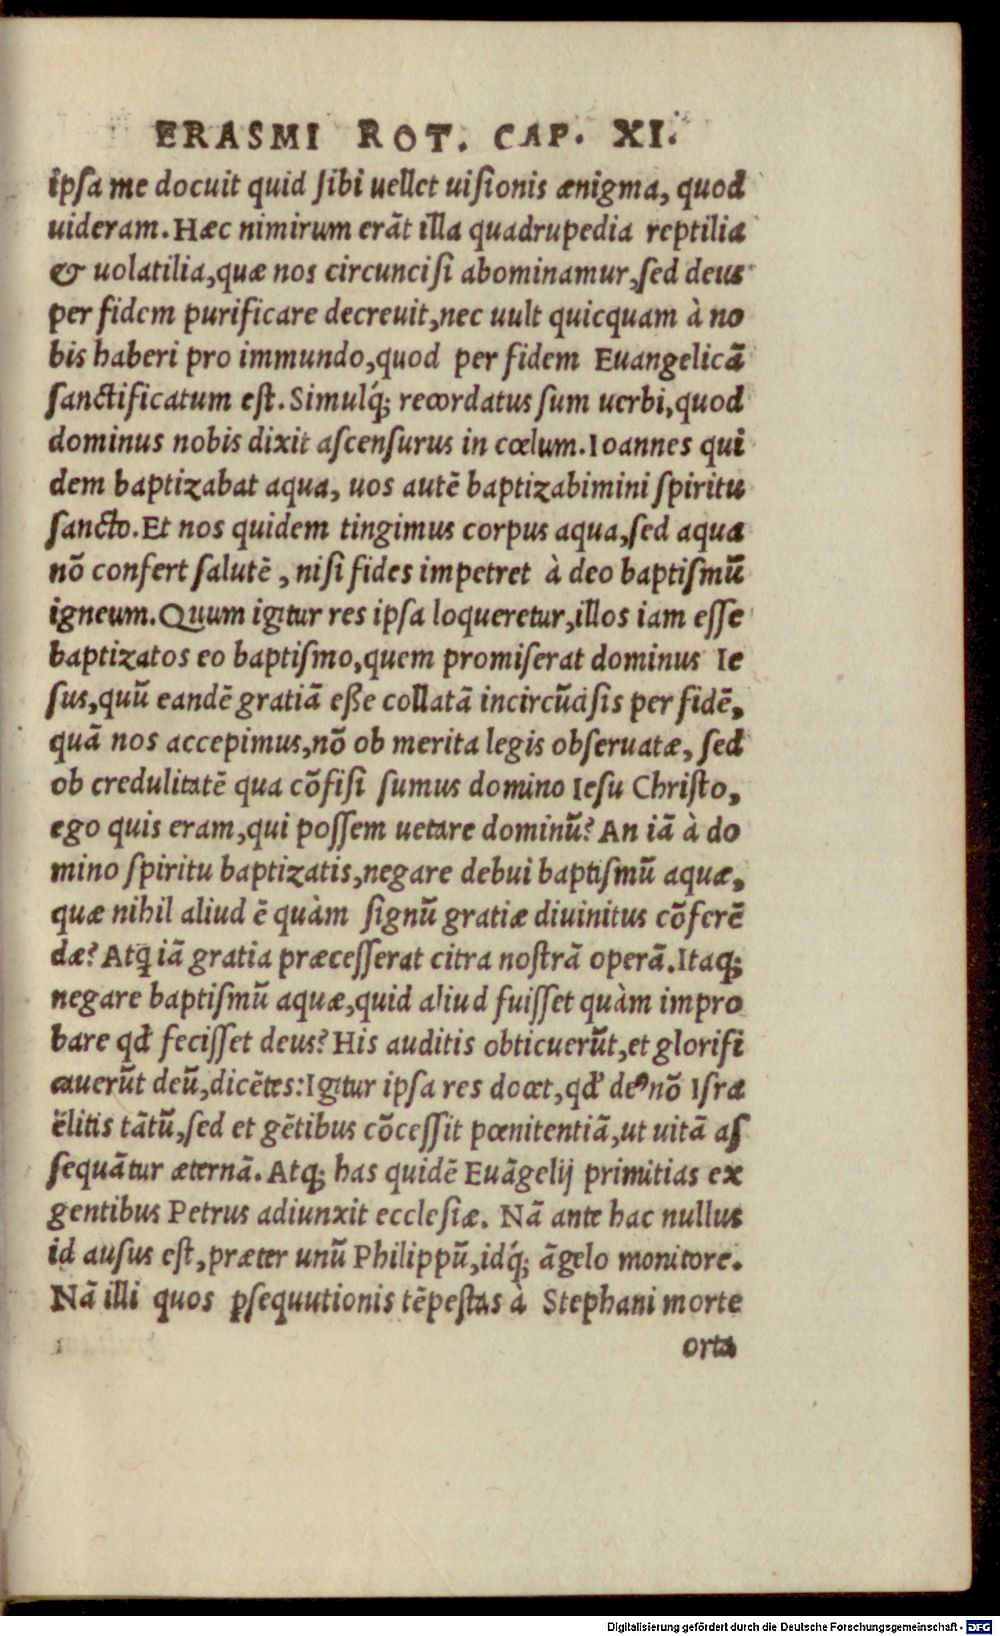 ERASMI ROT. CAP. XI.
ipsa me docuit quid sibi uellet uisionis ænigma, quod
uideram. Hæc nimirum erãt illa quadrupedia reptilia
& uolatilia, quæ nos circuncisi abominamur, sed deus
per fidem purificare decreuit, nec uult quicquam à no
bis haberi pro immundo, quod per fidem Euangelicã
sanctificatum est. Simulq́; recordatus sum uerbi, quod
dominus nobis dixit ascensurus in cœlum. Ioannes qui
dem baptizabat aqua, uos autẽ baptizabimini spiritu
sancto. Et nos quidem tingimus corpus aqua, sed aqua
nõ confert salutẽ, nisi fides impetret à deo baptismũ
igneum. Quum igitur res ipsa loqueretur, illos iam esse
baptizatos eo baptismo, quem promiserat dominus Ie
sus, quũ eandẽ gratiã eße collatã incircũcisis per fidẽ,
quã nos accepimus, nõ ob merita legis obseruatæ, sed
ob credulitatẽ qua cõfisi sumus domino Iesu Christo,
ego quis eram, qui possem uetare dominũ? An iã à do
mino spiritu baptizatis, negare debui baptismũ aquæ,
quæ nihil aliud ẽ quàm signũ gratiæ diuinitus cõferẽ
dæ? Atq̃ iã gratia præcesserat citra nostrã operã. Itaq;
negare baptismũ aquæ, quid aliud fuisset quàm impro
bare qđ fecisset deus? His auditis obticuerũt, et glorifi
cauerũt deũ, dicẽtes: Igitur ipsa res docet, qđ deꝰ nõ Isra
ëlitis tãtũ, sed et gẽtibus cõcessit pœnitentiã, ut uitã as
sequãtur æternã. Atq; has quidẽ Euãgelij primitias ex
gentibus Petrus adiunxit ecclesiæ. Nã ante hac nullus
id ausus est, præter unũ Philippũ, idq́; ãgelo monitore.
Nã illi quos ꝑsequutionis tẽpestas à Stephani morte
orta
Digitalisierung gefördert durch die Deutsche Forschungsgemeinschaft - DFG